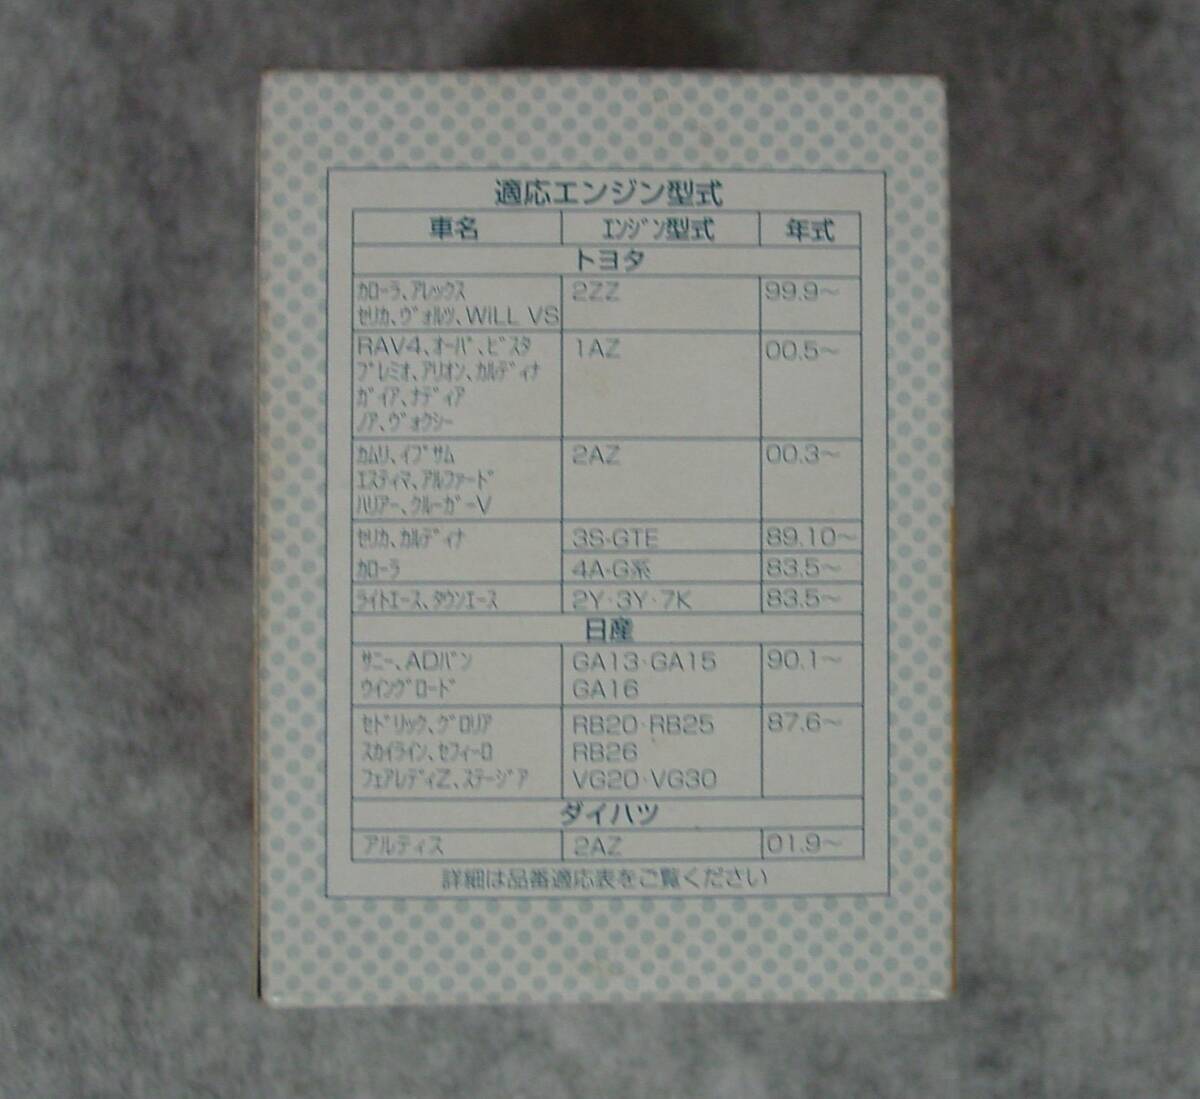 適応エンジン型式
車名 ｴﾝｼﾞﾝ型式 年式
トヨタ
ｶﾛｰﾗ、ｱﾚｯｸｽ 2ZZ 99.9～
ｾﾘｶ、ｳﾞｫﾙﾂ、WiLL VS
RAV4、ｵｰﾊﾟ、ﾋﾞｽﾀ 1AZ 00.5～
ﾌﾟﾚﾐｵ、ｱﾘｵﾝ、ｶﾙﾃﾞｨﾅ
ｶﾞｲｱ、ﾅﾃﾞｨｱ
ﾉｱ、ｳﾞｫｸｼｰ
ｶﾑﾘ、ｲﾌﾟｻﾑ 2AZ 00.3～
ｴｽﾃｨﾏ、ｱﾙﾌｧｰﾄﾞ
ﾊﾘｱｰ、ｸﾙｰｶﾞｰV
ｾﾘｶ、ｶﾙﾃﾞｨﾅ 3S-GTE 89.10～
ｶﾛｰﾗ 4A-G系 83.5～
ﾗｲﾄｴｰｽ、ﾀｳﾝｴｰｽ 2Y・3Y・7K 83.5～
日産
ｻﾆｰ、ADﾊﾞﾝ GA13・GA15 90.1～
ｳｲﾝｸﾞﾛｰﾄﾞ GA16
ｾﾄﾞﾘｯｸ、ｸﾞﾛﾘｱ RB20・RB25 87.6～
ｽｶｲﾗｲﾝ、ｾﾌｨｰﾛ RB26
ﾌｪｱﾚﾃﾞｨZ、ｽﾃｰｼﾞｱ VG20・VG30
ダイハツ
ｱﾙﾃｨｽ 2AZ 01.9～
詳細は品番適応表をご覧ください